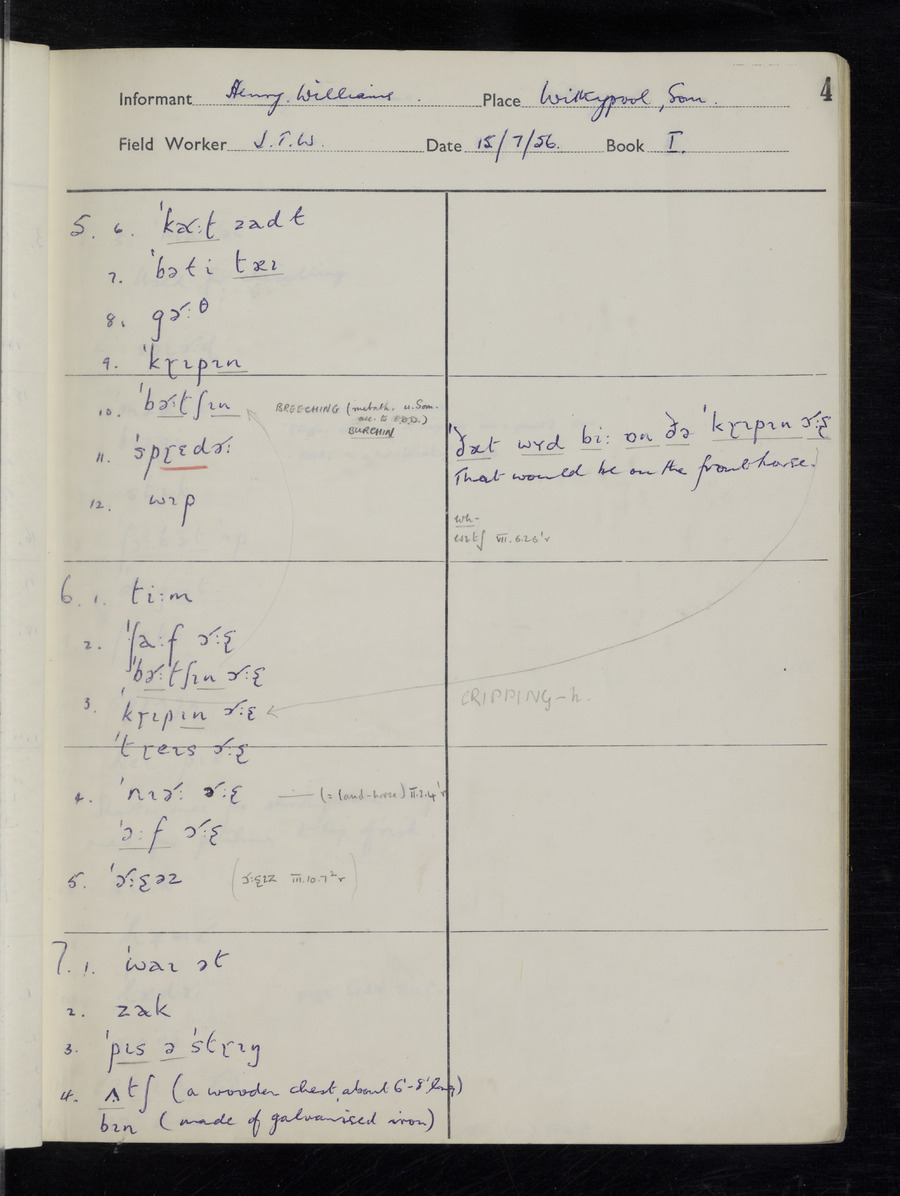 Informant Henry Williams. Place Withypool, Som. 4
Field Worker J.T.W. Date 15/7/56. Book I.
5. 6. ˈkɚːt zadt
7. ˈbəti tæɪ
8. gɚːθ
9. ˈkɽɪpɪn
10. ˈbɚːtʃɪn
BREECHING (metath. u.Som.
acc. to E.D.D.)
BURCHIN
11. ˈspɽɛdɚː
12. wɪp
ˈðæt wɤd biː ɒn ðə ˈkɽɪpɪn ɚːʂ
That would be on the front-horse.
wh-
VII.6.26'v
6. 1. tiːm
2. ˈʃaːf ɚːʂ
ˈbɚːtʃɪn ɚːʂ
3. ˈkɽɪpɪn ɚːʂ
CRIPPING-h.
ˈtɽeɪs ɚːʂ
4. ˈnɪɚː ɚːʂ (= land-horse)
ˈɔːf ɚːʂ
5. ˈɚːʂəz (ɚːʂɪz III.10.7²v)
7. 1. ˈwaɪ ət
2. zak
3. ˈpɪs ə ˈstɽɪŋ
4. ʌtʃ (a wooden chest, about 6'-8' long)
bɪn (made of galvanised iron)